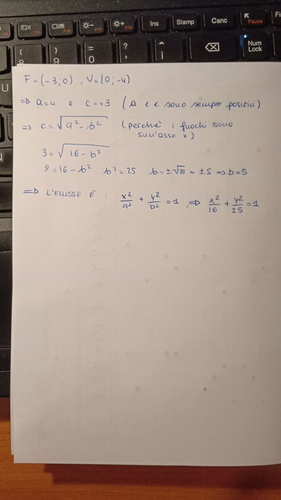 Insert
Stamp
Canc
Pausa
Num Lock
F = (-3; 0) , V = (0; -4)
⇒ a = 4 e c = +3 (a e c sono sempre positivi)
⇒ c = √(a² - b²) (perché i fuochi sono
sull'asse x)
3 = √(16 - b²)
9 = 16 - b² b² = 25 b = ± = ±5 ⇒ b = 5
⇒ L'ELLISSE È : x²/a² + y²/b² = 1 ⇒ x²/16 + y²/25 = 1